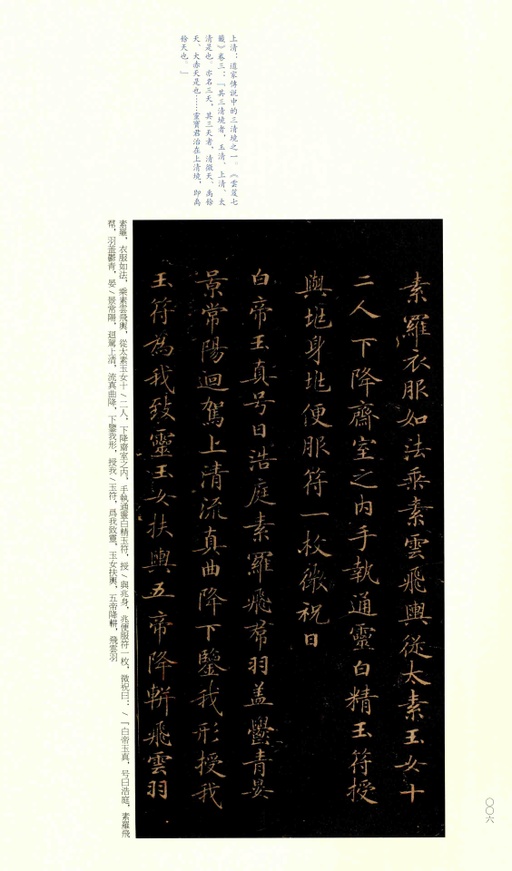 上清：道家傳説中的三清境之一。《雲笈七
籤》卷三：「其三清境者，玉清、上清、太
清是也。亦名三天，其三天者，清微天、禹餘
天、大赤天是也……靈寶君治在上清境，即禹
餘天也。」
素羅衣服如法乘素雲飛輿從太素玉女十
二人下降齋室之内手執通靈白精玉符授
與地身地便服符一枚微祝曰
白帝玉真号曰浩庭素羅飛帬羽盖鬱青晏
景常陽迴駕上清流真曲降下鑒我形授我
玉符為我致靈玉女扶輿五帝降軿飛雲羽
素羅，衣服如法，乘素雲飛輿，從太素玉女十/二人，下降齋室之内，手執通靈白精玉符，授/與兆身，兆便服符一枚，微祝曰：/「白帝玉真，号曰浩庭，素羅飛
帬，羽蓋鬱青，晏/景常陽，迴駕上清，流真曲降，下鑒我形，授我/玉符，爲我致靈，玉女扶輿，五帝降軿，飛雲羽
〇〇六